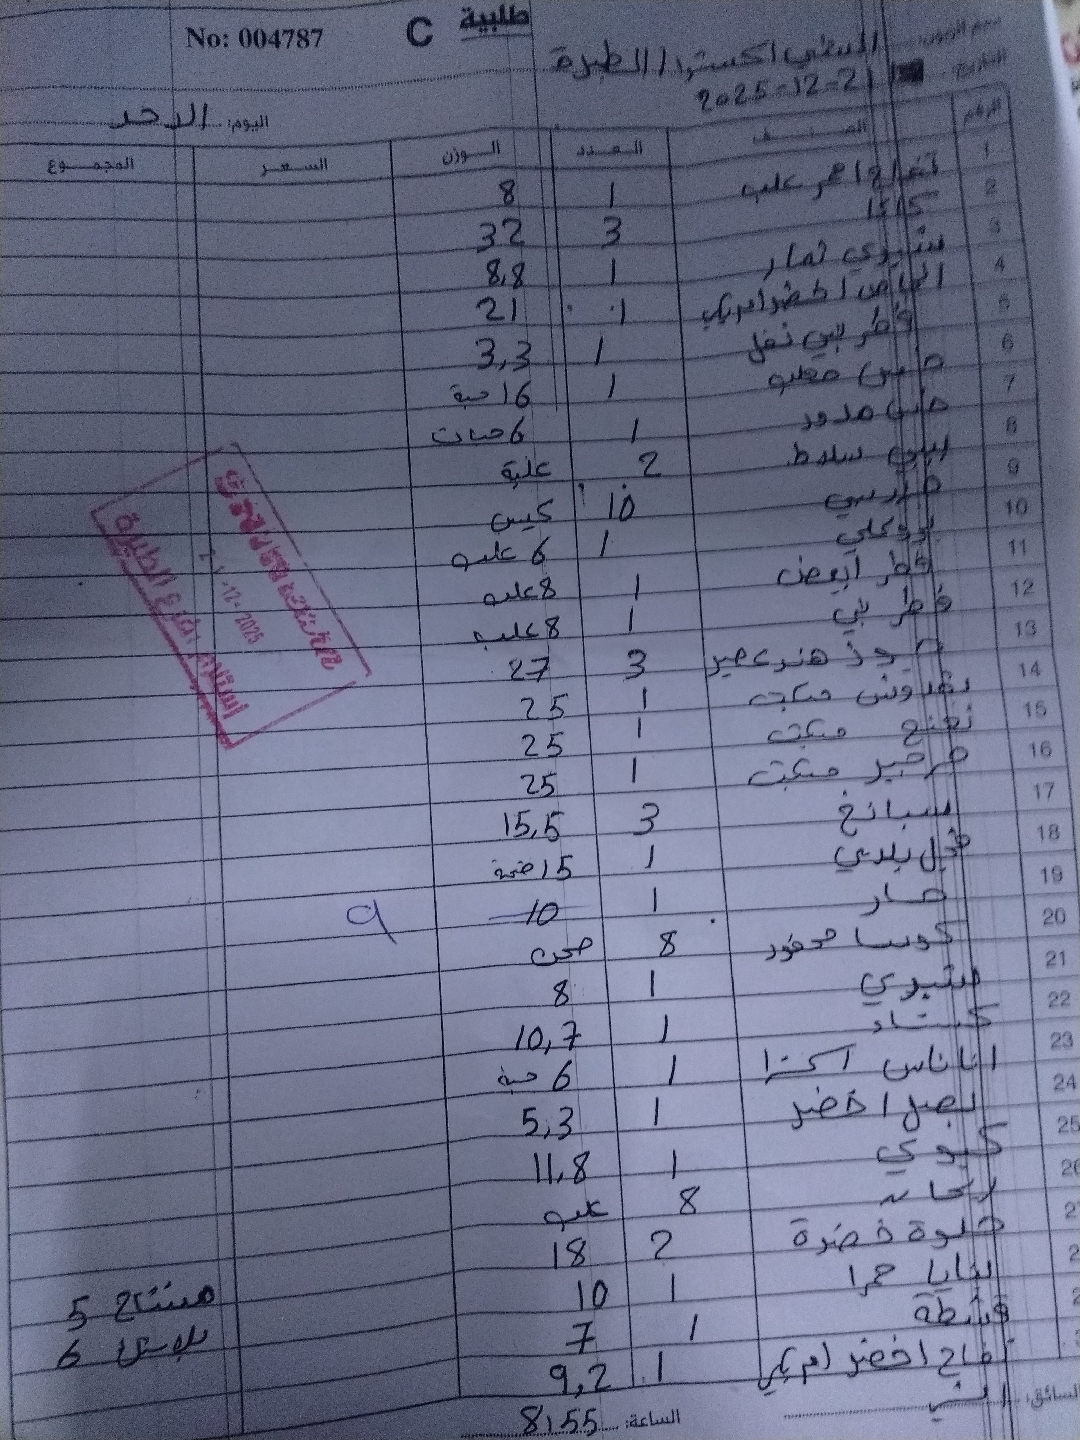 No: 004787 C طلبية
اسم الزبون: السلطي اكسترا / الطيرة
التاريخ: 21-12-2025
اليوم: الاحد
الرقم الصنف العدد الوزن السعر المجموع
1 تفاح احمر علب 1 8
2 3 32
3 ستيوي ثمار 1 8,8
4 اخضر امريكي 1 21
5 فطر بني نخل 1 3,3
6 خس معلب 1 16 حبة
7 خس مدور 1 6 حبات
8 بيبي سلط 2 علبة
9 10 كيس
10 بروكلي 1 6 علبه
11 فطر ابيض 1 8 علبه
12 فطر بني 1 8 علبه
13 جوز هند عصير 3 27
14 بقدونس مكبت 1 25
15 نعنع مكبت 1 25
16 جرجير مكبت 1 25
17 سبانخ 3 15,5
18 فجل بلدي 1 15 ضمة
19 خيار 1 10 9
20 كوسا محفور 8 صحن
21 1 8
22 كستناء 1 10,7
23 اناناس اكسترا 1 6 حبة
24 بصل اخضر 1 5,3
25 كيوي 1 11,8
26 ريحانه 8 علبه
27 حلوة خضرة 2 18
بابايا حمرا 1 10 5
قشطة 1 7 6
تفاح اخضر امريكي 1 9,2
السائق: الساعة: 8:55
استلام فرع الطيرة
-12-2025